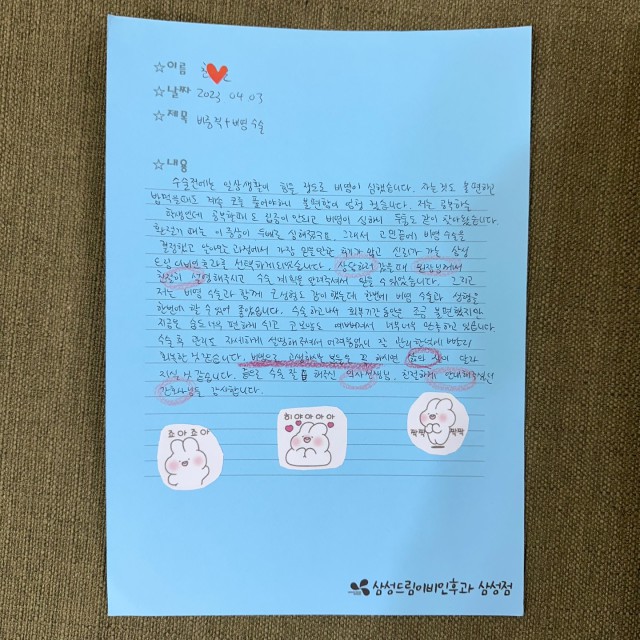 ☆이름
☆날짜 2023 04 03
☆제목 비중격+비염 수술
☆내용
수술전에는 일상생활이 힘들 정도로 비염이 심했습니다. 자는것도 불편하고
밥먹을때도 계속 코를 풀어야해서 불편함이 엄청 컸습니다. 저는 공부하는
학생인데 공부할때도 집중이 안되고 비염이 심해서 두통도 같이 찾아왔습니다.
환절기 때는 이 증상이 두배로 심해졌구요. 그래서 고민끝에 비염 수술을
결정했고 알아본 과정에서 가장 후기가 많고 신뢰가 가는 삼성
드림이비인후과를 선택하게되었습니다. 상담하러 갔을때 원장님께서
설명해주시고 수술 계획을 안내주셔서 믿을 수 있었습니다. 그리고
저는 비염 수술과 함께 코성형도 같이 했는데 한번에 비염 수술과 성형을
한번에 할 수 있어 좋았습니다. 수술 하고나서 회복기간동안은 조금 불편했지만
지금은 숨도 너무 편하게 쉬고 코모양도 예뻐져서 너무너무 만족하고 있습니다.
수술 후 관리도 자세하게 설명해주셔서 어려움없이 잘 관리 빨리
회복한 것 같습니다. 비염으로 고생했던 분들은 꼭 하시면 삶의 질이 달라
지실 것 같습니다. 좋은 수술 잘 해주신 의사선생님, 친절하게 안내해주셨던
간호사님들 감사합니다.
죠아죠아
히야아아아
짝짝 짝짝
삼성드림이비인후과 삼성점